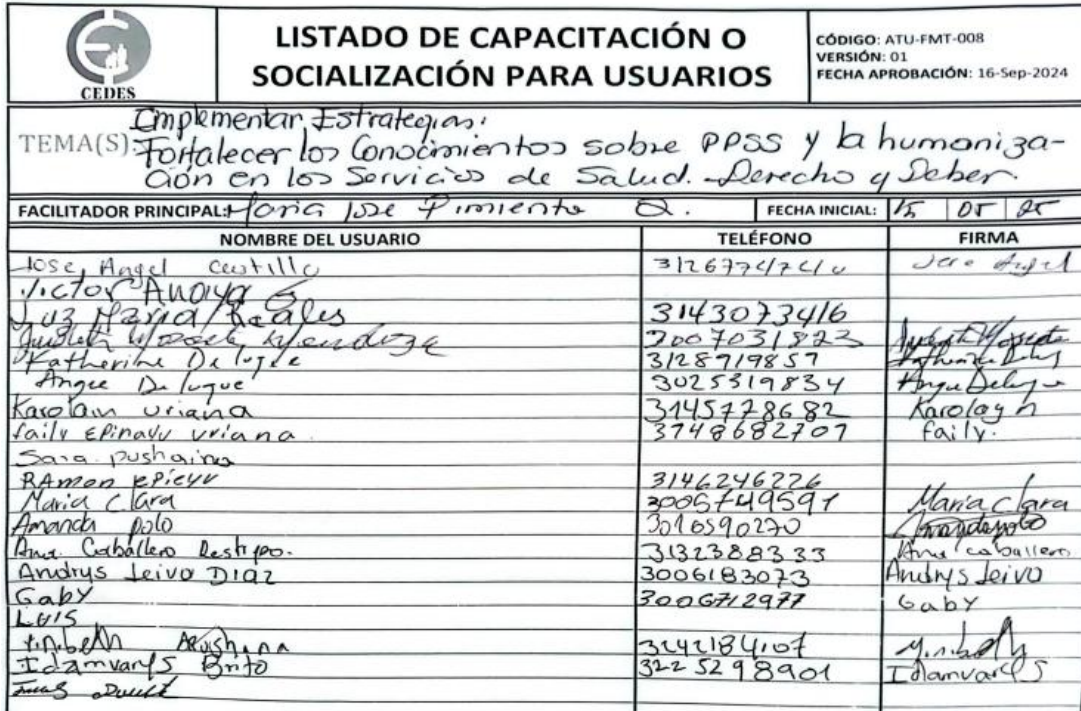 CEDES
LISTADO DE CAPACITACIÓN O
SOCIALIZACIÓN PARA USUARIOS
CÓDIGO: ATU-FMT-008
VERSIÓN: 01
FECHA APROBACIÓN: 16-Sep-2024
TEMA(S): Implementar Estrategias:
Fortalecer los Conocimientos sobre PPSS y la humaniza-
ción en los Servicios de Salud. Derecho y Deber.
FACILITADOR PRINCIPAL: Maria Jose Pimienta FECHA INICIAL: 15 05 25
NOMBRE DEL USUARIO TELÉFONO FIRMA
Jose Angel Castillo Jose Angel
Victor
Luz Maria Reales 3143073416
Mendoza 3007031823
Katherine Deluque 3128719857
Angie Deluque 3025319834 Angie Deluque
Karolain uriana 3145778682 Karolayn
faily EPinayu uriana. 3748682707 faily.
Sara pushaina
RAmon EPieyu 3146246226
Maria Clara 3005749591 Maria Clara
Amanda polo 3016590270
Ana Caballero Restrepo. 3132388333 Ana caballero
Andrys Leivo DIaz 3006183073 Andrys Leivo
GabY 3006712977 GabY
LUIS
3242184107
Idamvarys Brito 3225298901 Idamvarys